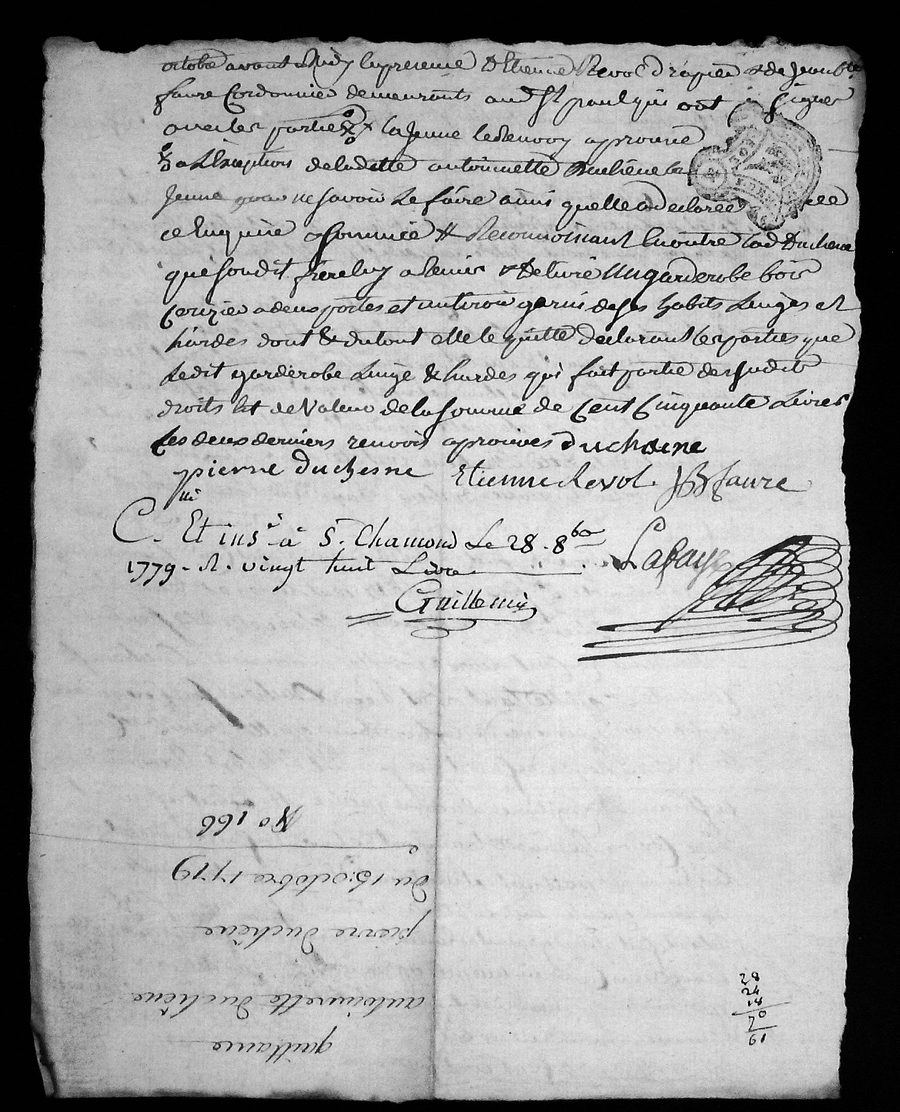 octobre avant Midy En presence d'Etienne Revol drapier & de Jean Bte
faure Cordonnier demeurants aud St paul qui ont signés
avec les parties la Jeune le Renvoy aprouvé
a L'Exeption de laditte antoinnette Duchêne la
Jeune pour ne savoir Le faire ainsi quelle a declarée
ce Enquise & sommée # Reconnoissant En outre lad Duchene
que sondit frere luy a remis & delivré Un garderobe bois
Cerizier a deux portes et un tiroir garni de ses habits Linges et
hardes dont & du tout elle le quitte declarant les parties que
Ledit garderobe Linge & hardes qui fait partie desdudits
droits Est de Valeur de la somme de Cent Cinquante Livres
Les deux derniers renvois aprouvés Duchaine
pierre duchesne Etienne Revol JB faure
C. Et insé à St Chamond Le 28 8bre
1779 R. vingt huit Livre
Lafaye
Guillemin
quittance
antoinette duchêne
pierre duchêne
du 15 octobre 1779
No 166
28
24
18
70
61